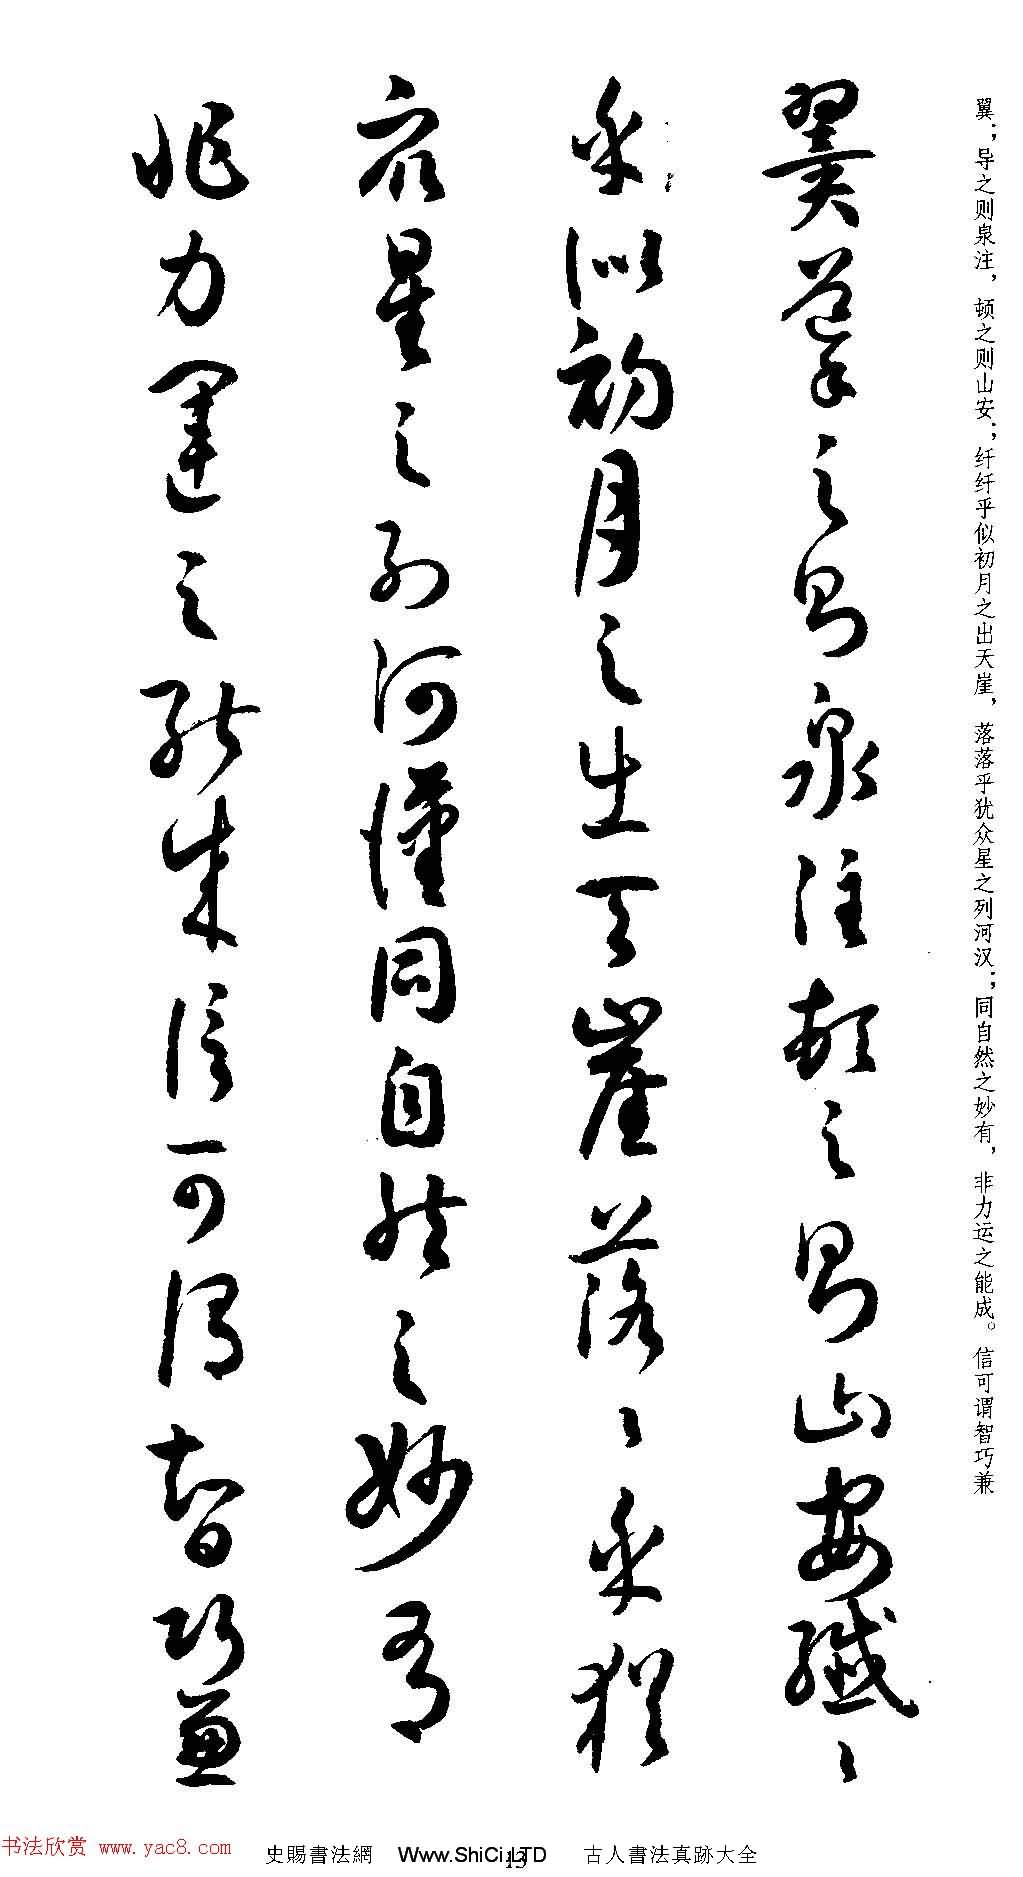 翼；导之则泉注，顿之则山安；纤纤乎似初月之出天崖，落落乎犹众星之列河汉；同自然之妙有，非力运之能成。信可谓智巧兼
翼導之則泉注頓之則山安纖〻
乎似初月之出天崖落〻乎猶
衆星之列河漢同自然之妙有
非力運之能成信可謂智巧兼
书法欣赏 www.yac8.com
史賜書法網 Www.ShiCi.LTD 古人書法真跡大全
13